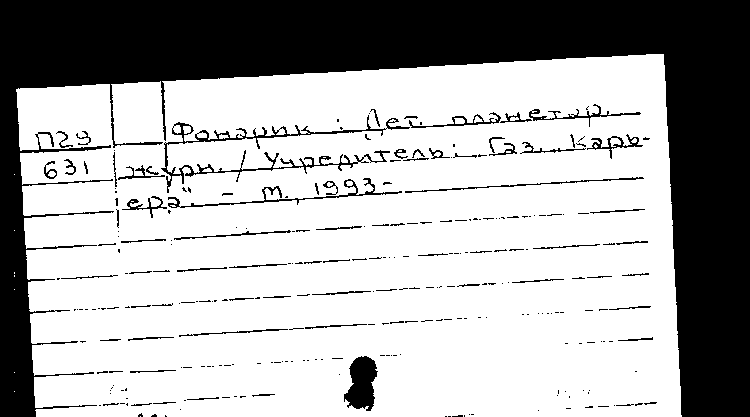 П29 Фонарик : Дет. планетар.
631 журн. / Учредитель: Газ. „Карь-
ера". - М., 1993-